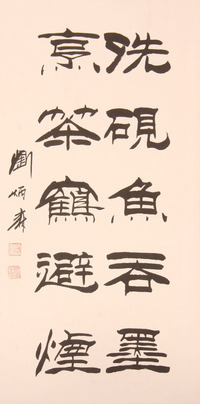 洗硯魚吞墨
烹茶鶴避煙
劉炳森